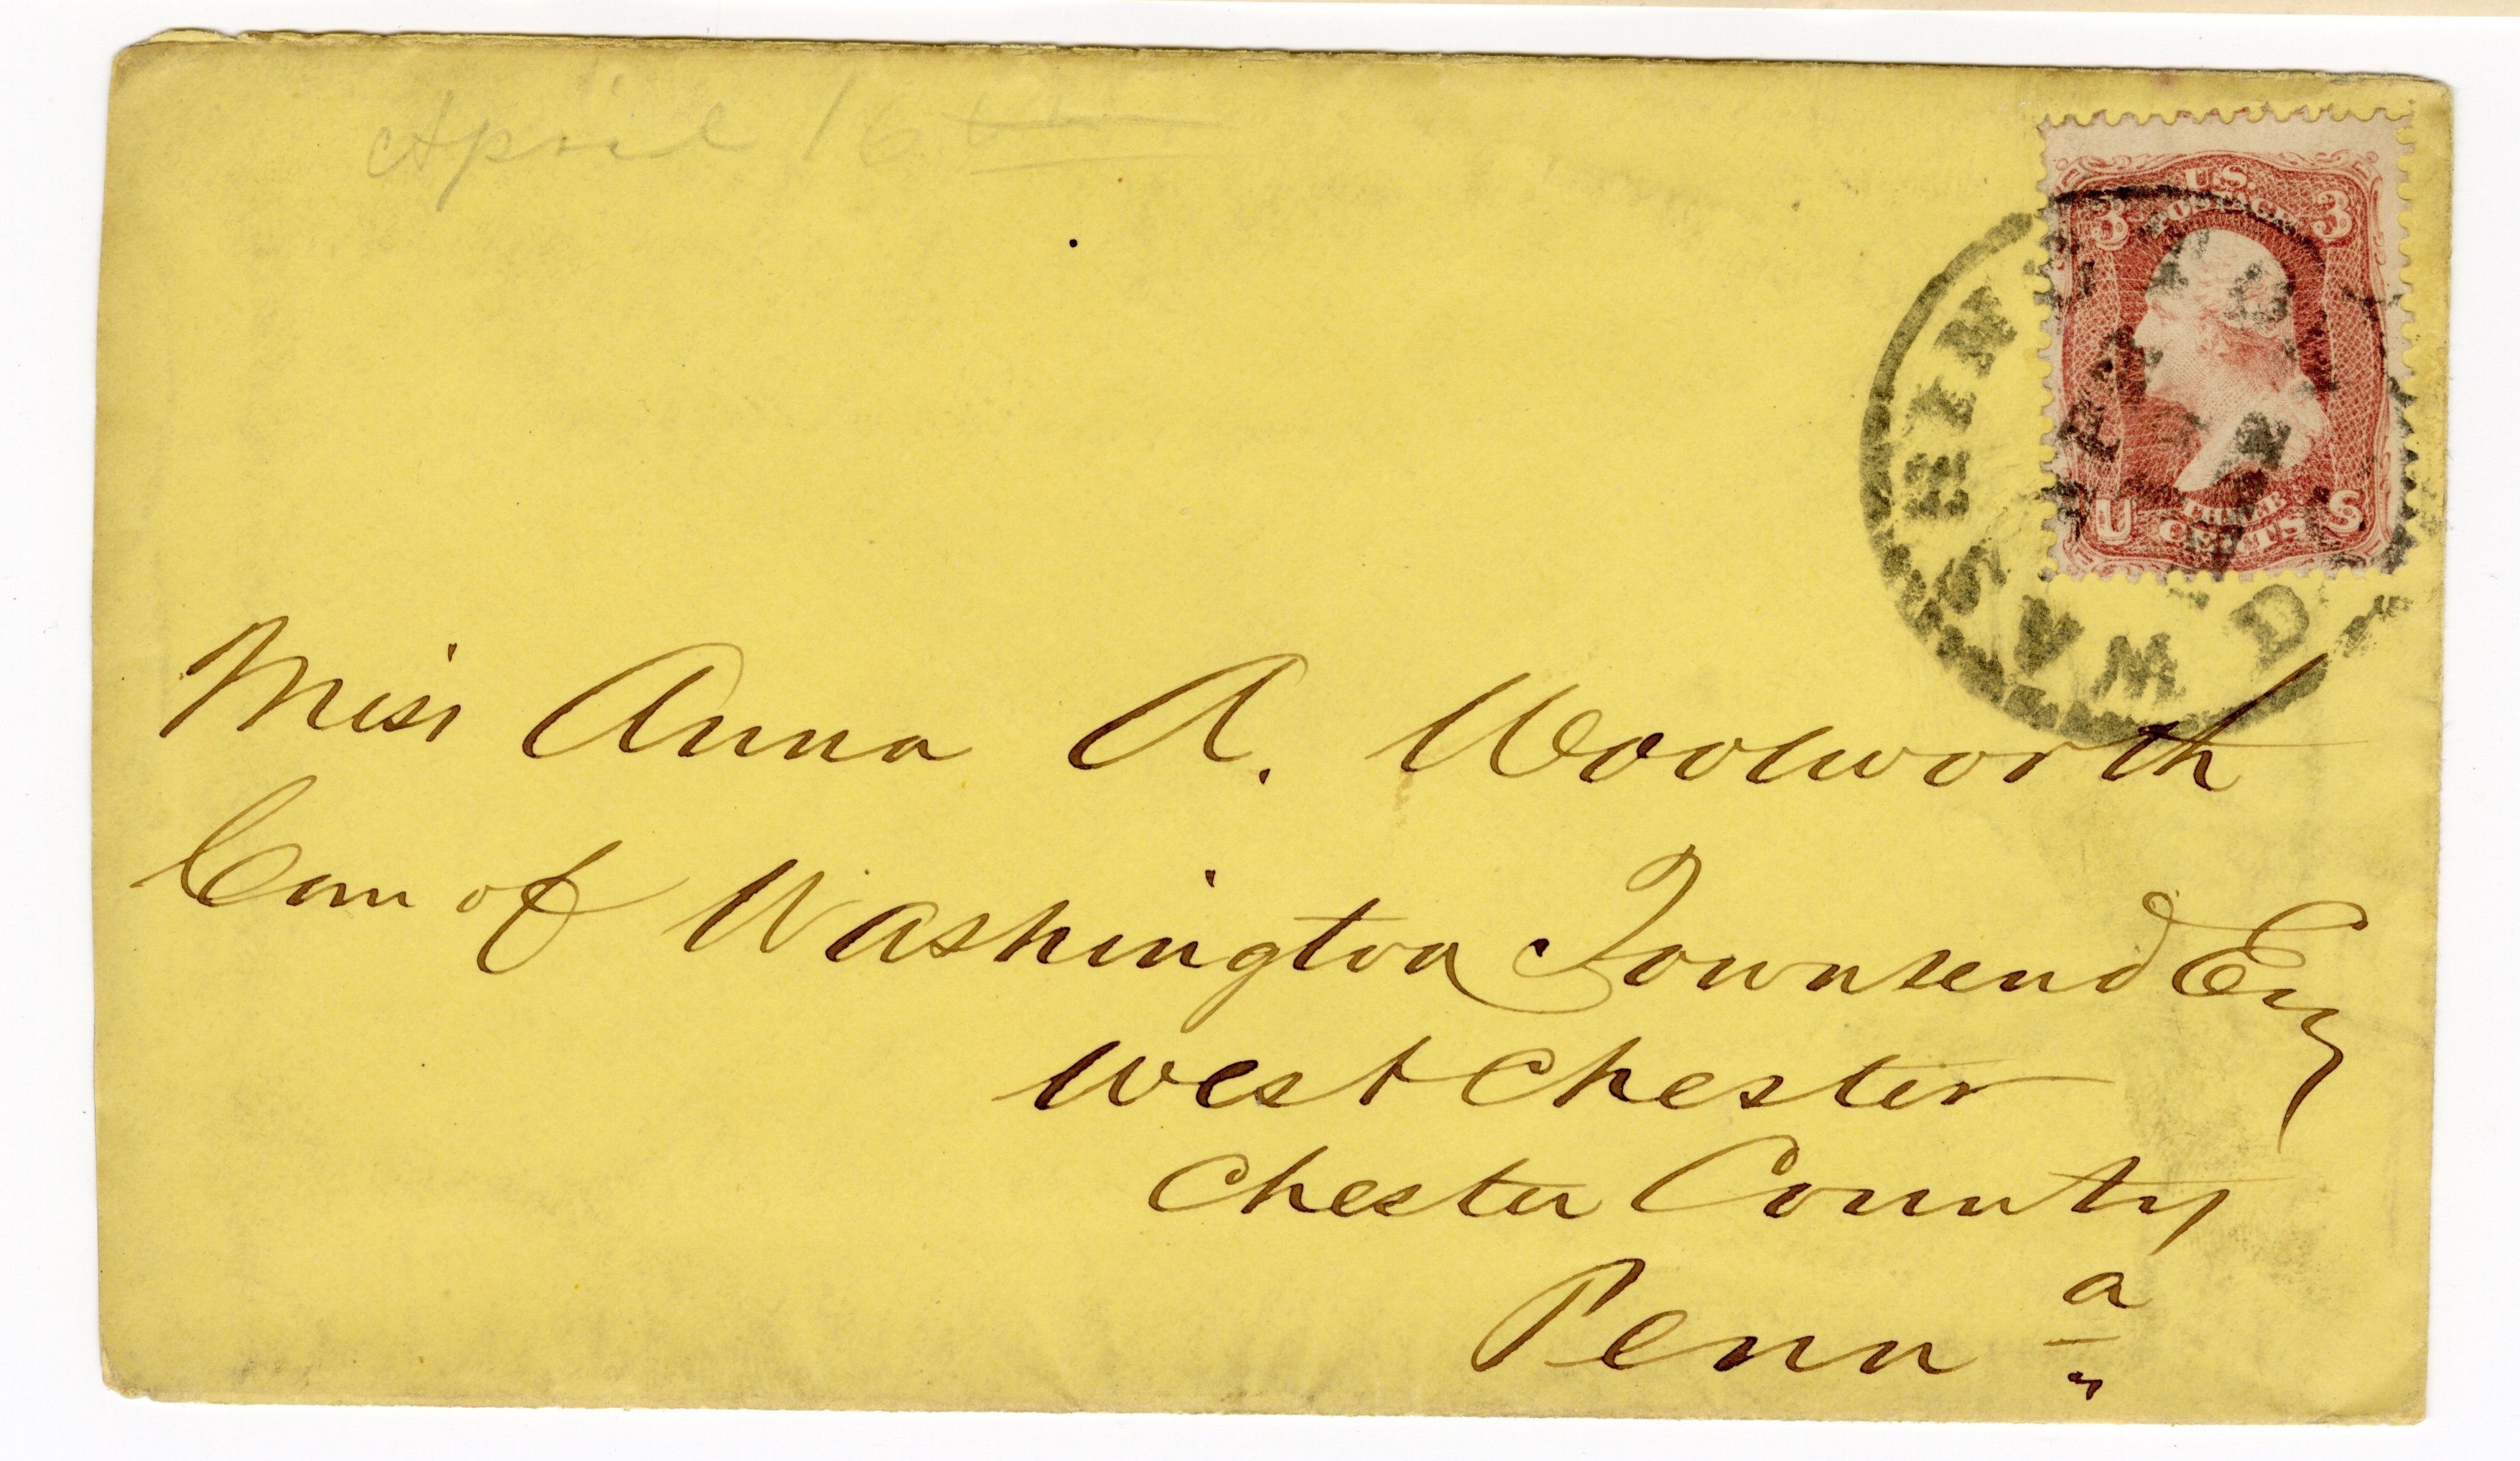 April 16th
U.S. POSTAGE
3 3
U THREE CENTS S
WASHINGTON D
Miss Anna A. Woolworth
Care of Washington Townsend Esq
West Chester
Chester County
Penn a